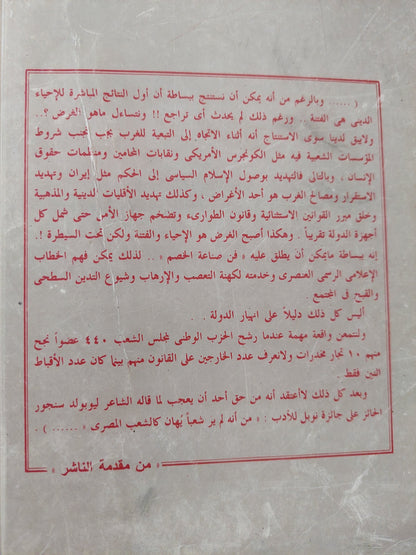 ( ...... وبالرغم من أنه يمكن أن نستنتج ببساطة أن أول النتائج المباشرة للإحياء
الدينى هى الفتنة .. ورغم ذلك لم يحدث أى تراجع !! ونتساءل ماهو الغرض ؟..
ولايبق لدينا سوى الاستنتاج أنه أثناء الاتجاه إلى التبعية للغرب يجب تجنب شروط
المؤسسات الشعبية فيه مثل الكونجرس الأمريكى ونقابات المحامين ومنظمات حقوق
الإنسان ، وبالتالى فالتهديد بوصول الإسلام السياسى إلى الحكم مثل إيران وتهديد
الاستقرار ومصالح الغرب هو أحد الأغراض ، وكذلك تهديد الأقليات الدينية والمذهبية
وخلق مبرر القوانين الاستثنائية وقانون الطوارىء وتضخم جهاز الأمن حتى شمل كل
أجهزة الدولة تقريباً . وهكذا أصبح الغرض هو الإحياء والفتنة ولكن تحت السيطرة !.
إنه ببساطة مايمكن أن يطلق عليه « فن صناعة الخصم » .. لذلك يمكن فهم الخطاب
الإعلامى الرسمى العنصرى وخدمته لكهنة التعصب والإرهاب وشيوع التدين السطحى
والقبح فى المجتمع .
أليس كل ذلك دليلاً على انهيار الدولة . .
ولنتمعن واقعة مهمة عندما رشح الحزب الوطنى لمجلس الشعب ٤٤٠ عضواً نجح
منهم ١٠ تجار مخدرات ولانعرف عدد الخارجين على القانون منهم بينما كان عدد الأقباط
اثنين فقط .
وبعد كل ذلك لاأعتقد أنه من حق أحد أن يعجب لما قاله الشاعر ليوبولد سنجور
الحائز على جائزة نوبل للأدب : « من أنه لم ير شعباً يهان كالشعب المصرى » ...... ) .
« من مقدمة الناشر »